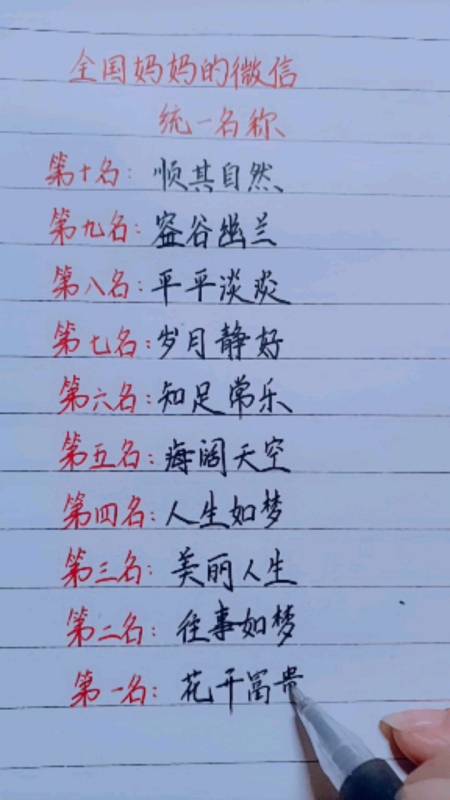 全国妈妈的微信
统一名称
第十名：顺其自然
第九名：空谷幽兰
第八名：平平淡淡
第七名：岁月静好
第六名：知足常乐
第五名：海阔天空
第四名：人生如梦
第三名：美丽人生
第二名：往事如梦
第一名：花开富贵